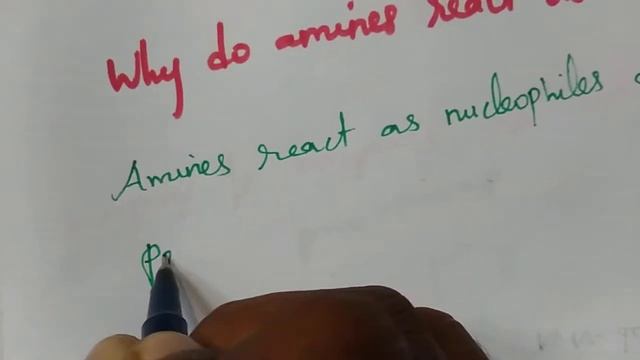 Why do amines react
Amines react as nucleophiles